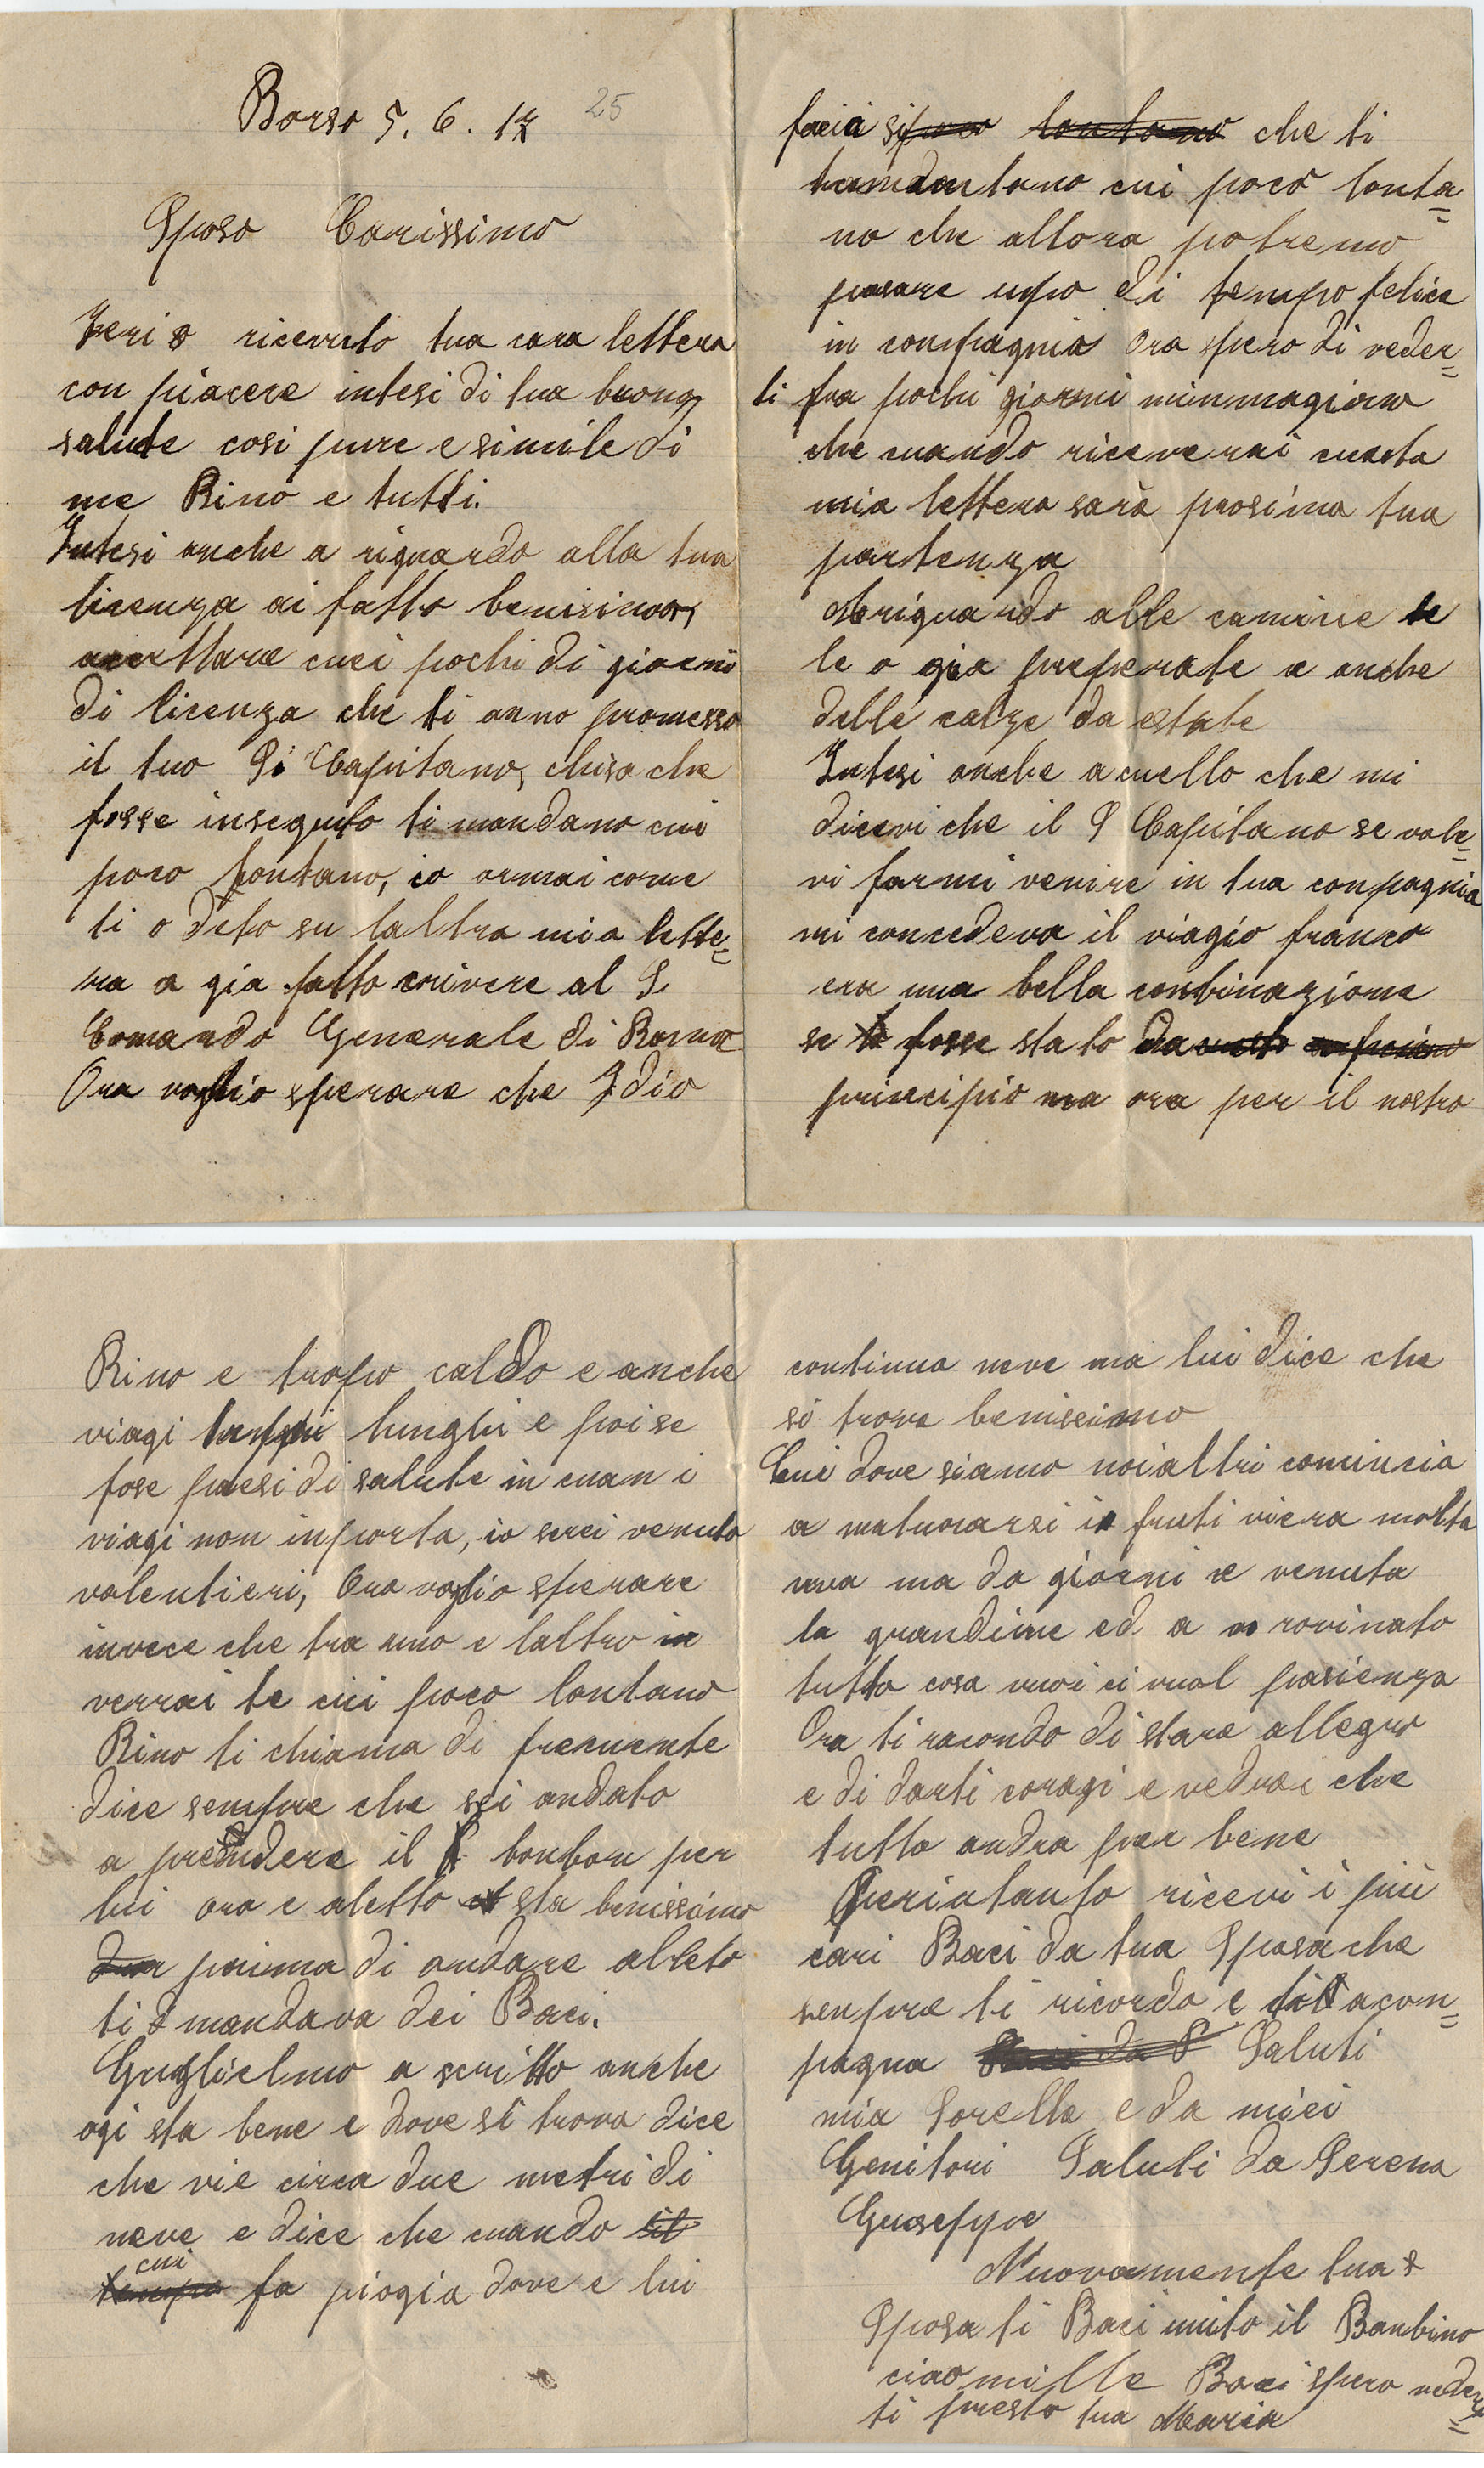 Borso 5. 6. 17 25
Sposo Carissimo
Ieri o ricevuto tua cara lettera
con piacere intesi di tua buona
salute cosi pure e simile di
me Rino e tutti.
Intesi anche a riguardo alla tua
licenza ai fatto benisimo
acettare cuei pochi di giorni
di licenza che ti anno promesso
il tuo S. Capitano, chisa che
fosse inseguito ti mandano cui
poco lontano, io ormai come
ti o deto su laltra mia lette=
ra a gia fatto scrivere al S.
Comando Generale di Roma
Ora voglio sperare che Idio
facia si poco lontano che ti
mandano cui poco lonta=
no che allora potremo
pasare unpo di tempo felice
in compagnia Ora spero di veder=
ti fra pochi giorni minmagino
che cuando riceverai cuesta
mia lettera sarà prosima tua
partenza
Ariguardo alle camicie te
le o gia preperate e anche
delle calze da estate
Intesi anche a cuello che mi
dicevi che il S Capitano se vole=
vi farmi venire in tua conpagnia
mi concedeva il viagio franco
era una bella conbinazione
se fosse stato da
principio ma ora per il nostro
Rino e tropo caldo e anche
viagi lunghi lunghi e poi se
fose paesi di salute in cuan i
viagi non inporta, io serei venuto
volentieri, Ora voglio sperare
invece che tra uno e laltro in
verrai te cui poco lontano
Rino ti chiama di frecuente
dice sempre che sei andato
a prendere il bonbon per
lui ora e aletto sta benissimo
prima di andare alleto
ti mandava dei Baci.
Guglielmo a scritto anche
ogi sta bene e dove si trova dice
che vie circa due metri di
neve e dice che cuando
cui
tempo fa piogia dove e lui
continua neve ma lui dice che
si trova benissimo
Cui dove siamo noialtri comincia
a maturarsi i fruti viera molta
uva ma da giorni e venuta
la grandine ed a rovinato
tutto cosa vuoi ci vuol pasienza
Ora ti racondo di stare allegro
e di darti coragi e vedrai che
tutto andra per bene
Perintanto ricevi i più
cari Baci da tua Sposa che
senpre ti ricorda e ti acon=
pagna Saluti
mia Sorella e da miei
Genitori Saluti da Serena
Guseppe
Nuovamente tua
Sposa ti Baci unito il Banbino
ciao mille Baci spero veder=
ti presto tua Maria